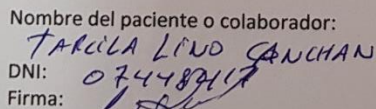 Nombre del paciente o colaborador:
TARCILA LINO CANCHAN
DNI: 07448717
Firma: